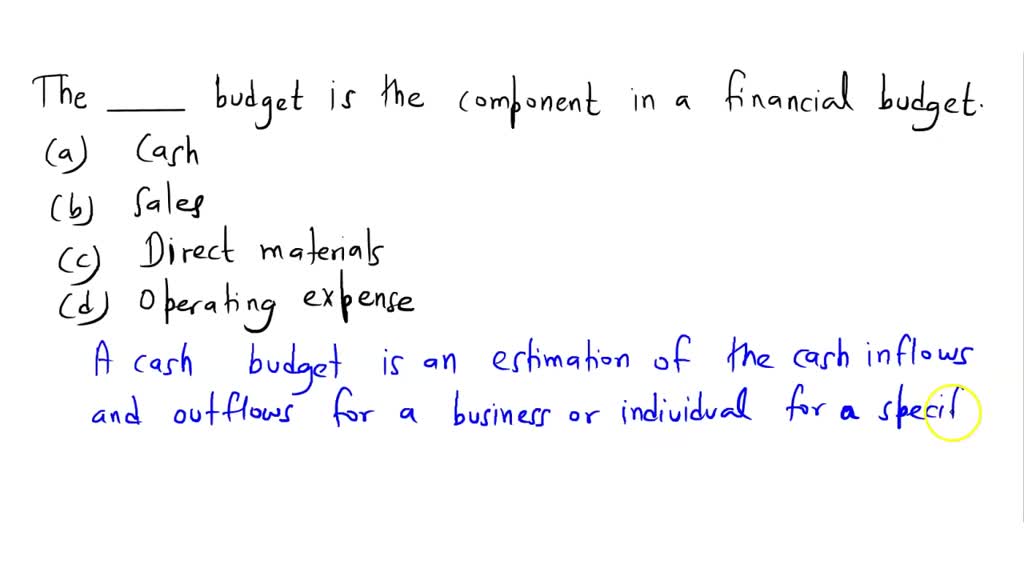 The ____ budget is the component in a financial budget.
(a) Cash
(b) Sales
(c) Direct materials
(d) Operating expense
A cash budget is an estimation of the cash inflows
and outflows for a business or individual for a specif